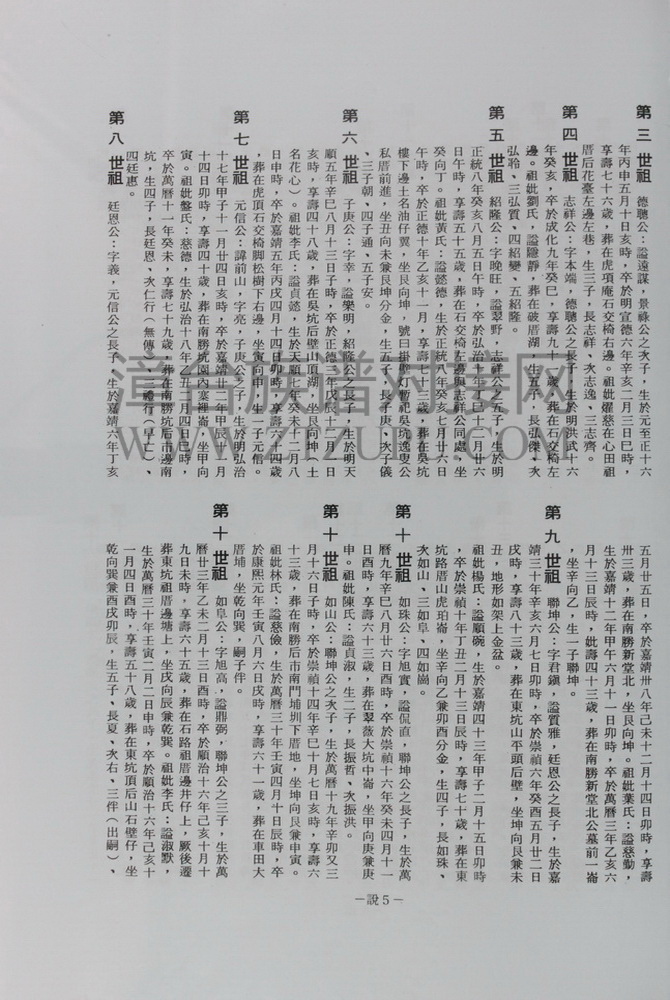 第三世祖　德聰公：諡遠謀，景祿公之次子，生於元至正十六
年丙申五月十日亥時，卒於明宣德六年辛亥二月三日巳時，
享壽七十六歲，葬在虎項庵石交椅右邊。祖妣燿慈在心田祖
厝后花臺左邊左巷，生三子，長志祥、次志逸、三志齊。
第四世祖　志祥公：字本端，德聰公之長子，生於明洪武十六
年癸亥，卒於成化九年癸巳，享壽九十一歲，葬在石交椅左
邊。祖妣劉氏，諡隱靜，葬在破厝湖，生五子，長弘傑、次
弘聆、三弘質、四紹變、五紹隆。
第五世祖　紹隆公：字晚旺，諡翠野，志祥公之五子，生於明
正統八年癸亥八月五日午時，卒於弘治十年丁巳十二月廿六
日午時，享壽五十五歲，葬在石交椅左邊與志祥公同處，坐
癸向丁。祖妣黃氏：諡懿德，生於正統八年癸亥七月廿六日
午時，卒於正德十年乙亥十一月，享壽七十三歲，葬在吳坑
樓下邊土名油仔翼，坐艮向坤，號曰掛壁灯暫祀吳坑逸叟公
私厝前進，坐丑向未兼艮坤分金，生五子，長子庚、次子儀
、三子朝、四子通、五子安。
第六世祖　子庚公：字幸，諡樂明，紹隆公之長子，生於明天
順五年辛巳八月十三日子時，卒於正德三年戊辰十二月一日
亥時，享壽四十八歲，葬在吳坑后壁山頂湖，坐艮向坤（土
名花心）。祖妣李氏：諡貞懿，生於天順七年癸未十二月八
日申時，卒於嘉靖五年丙戌四月十四日卯時，享壽六十四歲
，葬在虎頂石交椅脚松樹下右邊，坐寅向申，生一子元信。
第七世祖　元信公：諱前山，字亮，子庚公之子，生於明弘治
十七年甲子十一月廿四日亥時，卒於嘉靖廿二年甲辰十一月
十四日卯時，享壽四十歲，葬在南勝坑園內寨裡崙，坐甲向
寅。祖妣盤氏：慈德，生於弘治十八年乙丑二月四日子時，
卒於萬曆十一年癸未，享壽七十九歲，葬在南勝坑后市邊南
坑，生四子，長廷恩、次仁行（無傳）、三禮行（早亡）、
四廷惠。
第八世祖　廷恩公：字義，元信公之長子，生於嘉靖六年丁亥
五月廿五日，卒於嘉靖卅八年己未十二月十四日卯時，享壽
卅三歲，葬在南勝新堂北，坐艮向坤。祖妣葉氏：諡慈勤，
生於嘉靖十二年甲午六月十一日卯時，卒於萬曆三年乙亥六
月十三日辰時，妣壽四十三歲，葬在南勝新堂北公墓前一崙
，坐辛向乙，生一子聯坤。
第九世祖　聯坤公：字君鎮，諡質雅，廷恩公之長子，生於嘉
靖三十年辛亥六月七日卯時，卒於崇禎六年癸酉五月廿二日
戌時，享壽八十三歲，葬在東坑山平頭后壁，坐坤向艮兼未
丑，地形如架上金盆。
祖妣楊氏：諡順碗，生於嘉靖四十三年甲子二月十五日卯時
，卒於崇禎十年丁丑二月十三日辰時，享壽七十歲，葬在東
坑路厝山虎珀崙，坐辛向乙兼卯酉分金，生四子，長如珠、
次如山、三如阜、四如崗。
第十世祖　如珠公：字旭實，諡侃直，聯坤公之長子，生於萬
曆九年辛巳八月廿六日酉時，卒於崇禎十六年癸未四月十一
日酉時，享壽六十三歲，葬在翠薇大坑中崙，坐甲向庚兼庚
申。祖妣陳氏：諡貞淑，生二子，長振哲、次振洪。
第十世祖　如山公：聯坤公之次子，生於萬曆十九年辛卯又三
月十六日子時，卒於崇禎十四年辛巳十月七日亥時，享壽六
十三歲，葬在南勝后市南門埔圳下厝地，坐坤向艮兼申寅。
祖妣林氏：諡慈儉，生於萬曆三十年壬寅四月十日辰時，卒
於康熙元年壬寅八月六日戌時，享壽六十一歲，葬在車田大
厝埔，坐乾向巽，嗣子伴。
第十世祖　如阜公：字旭高，諡鼎弼，聯坤公之三子，生於萬
曆廿三年乙未二月十三日酉時，卒於順治十六年己亥十月十
九日未時，享壽六十五歲，葬在石路祖厝邊井仔上，厥後遷
葬東坑祖厝邊塘上，坐戌向辰兼乾巽。祖妣李氏：諡淑默，
生於萬曆三十年壬寅二月二日申時，卒於順治十六年己亥十
一月四日酉時，享壽五十八歲，葬在東坑頂后山石壁仔，坐
乾向巽兼酉戌卯辰，生五子、長夏、次右、三伴（出嗣）、
－說5－
漳台族譜对接网
WWW.ZTZUPU.COM